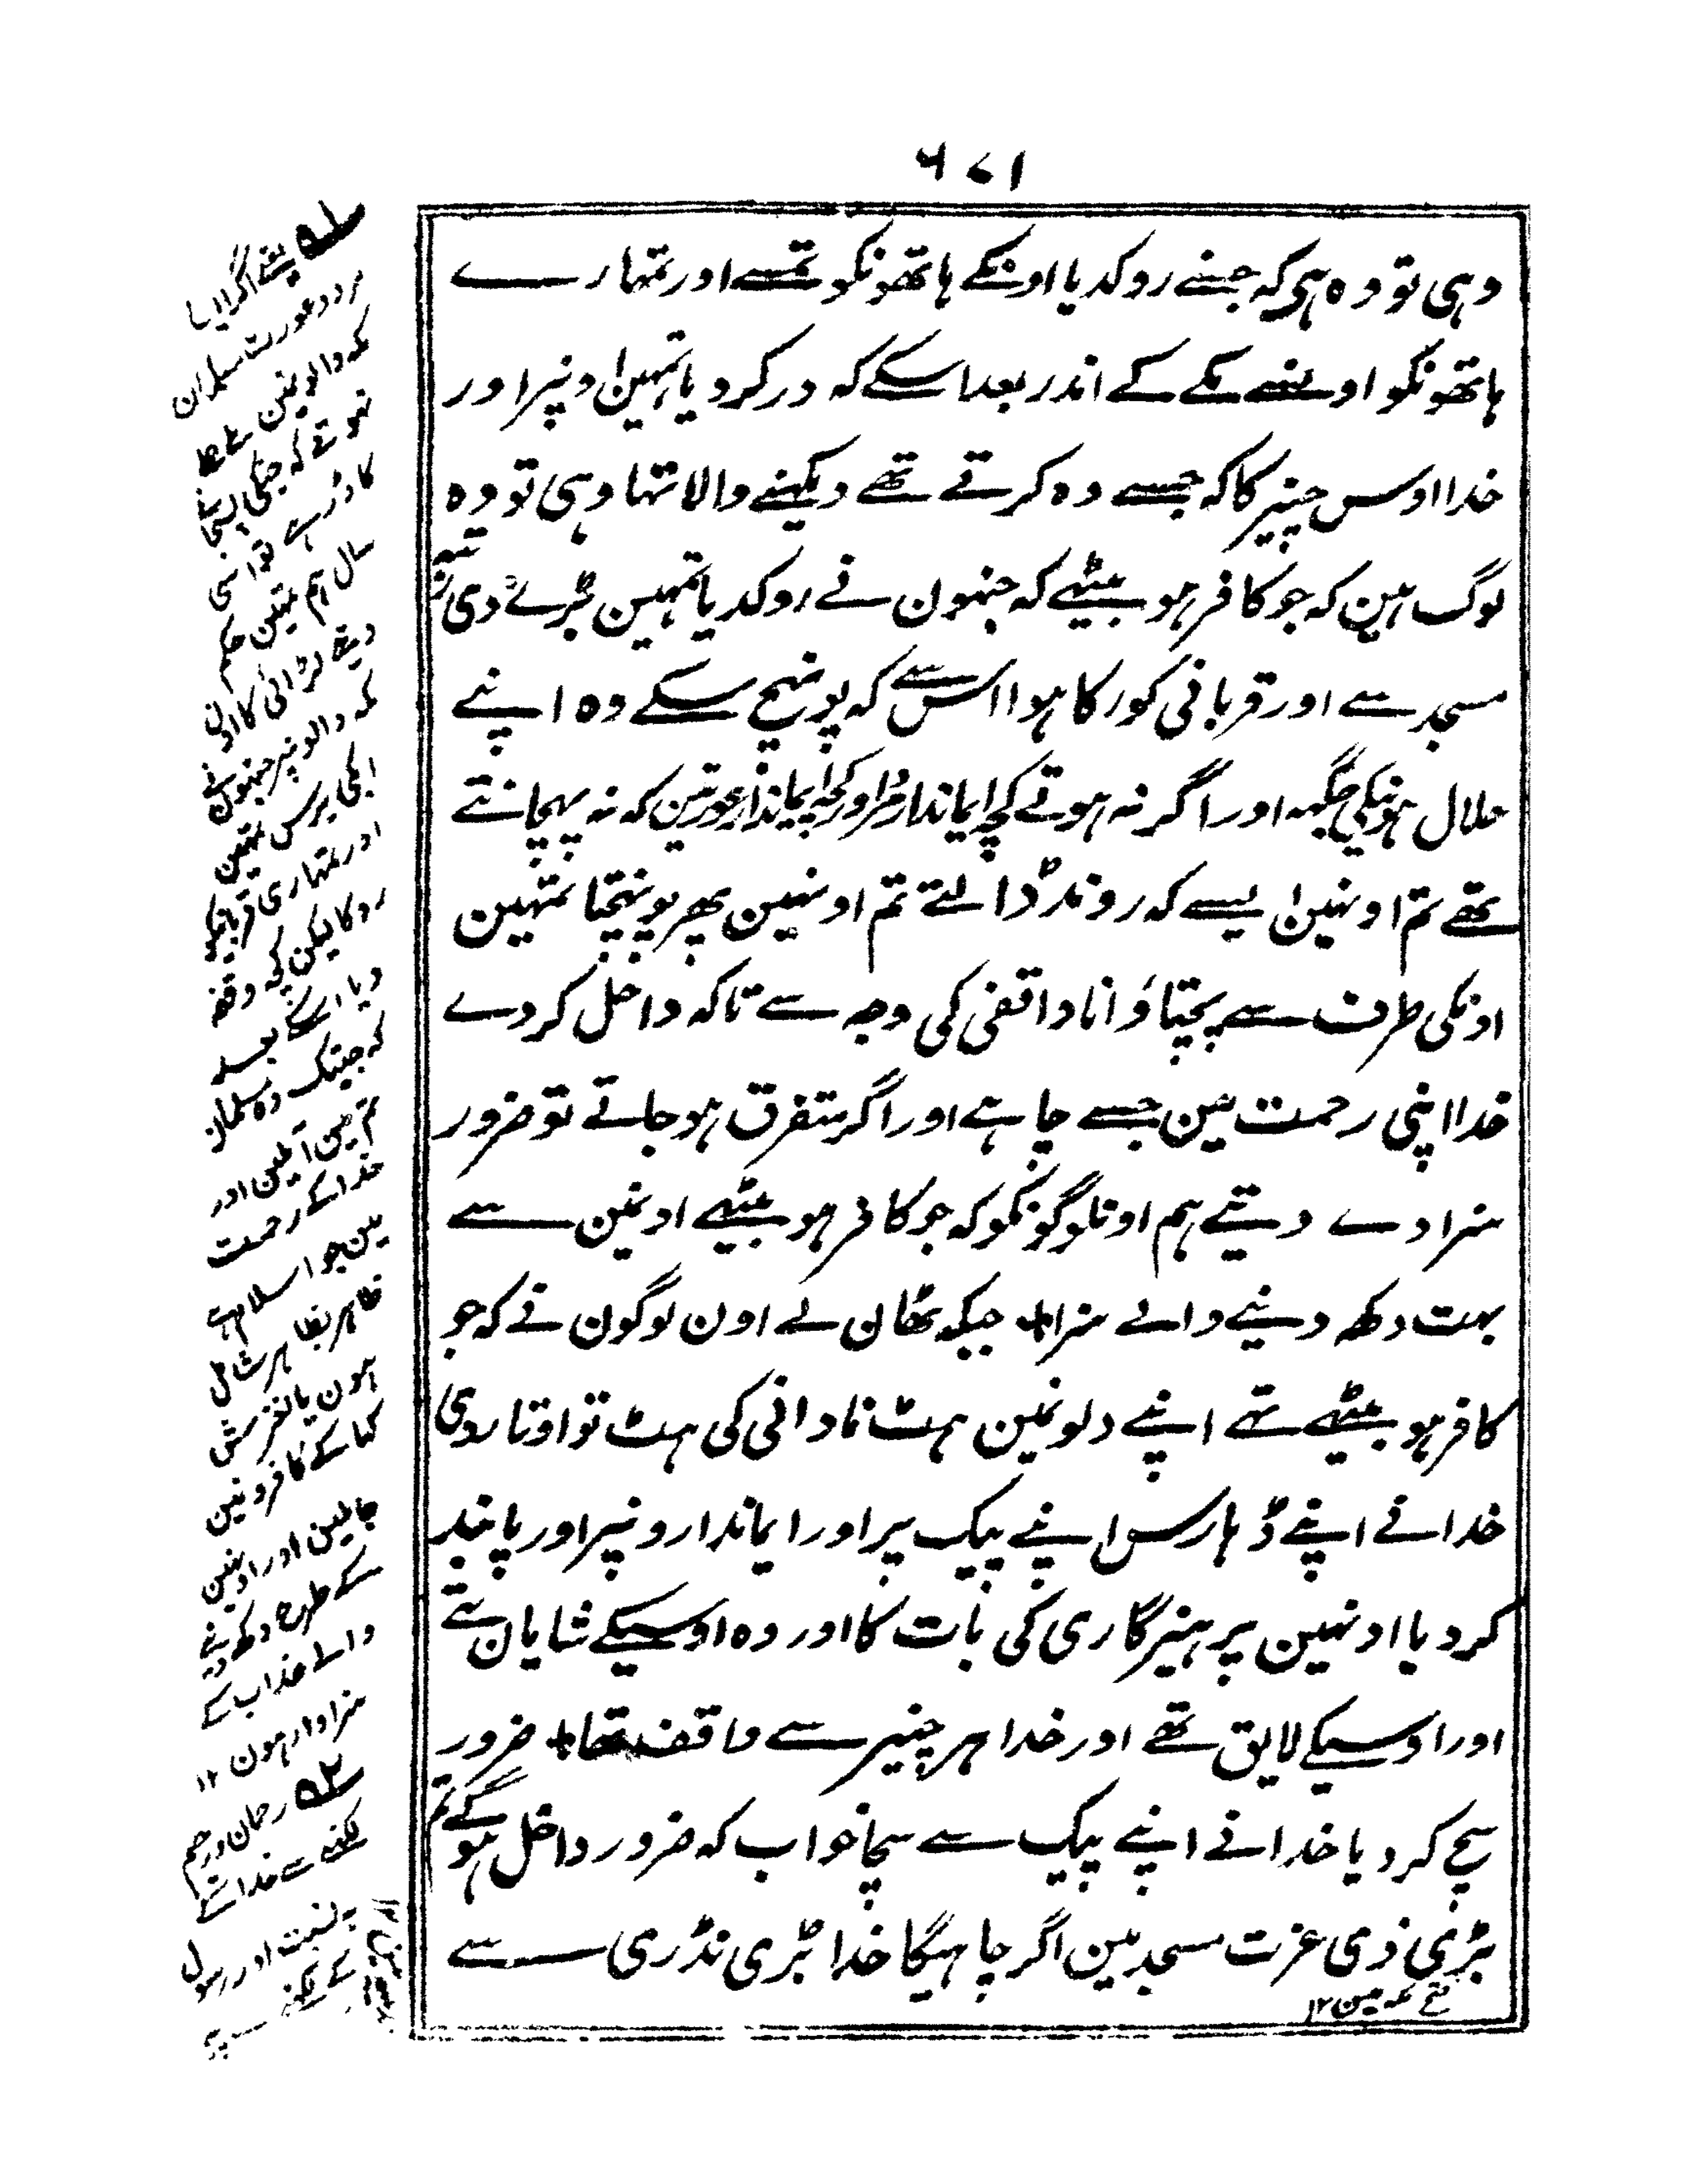 ۶۷۱
وہی تو وہ ہی کہ جسنے روکدیا اونکے ہاتھونکو تمسے اور تمہارے
ہاتھونکو اونسے مکے کے اندر بعد اسکے کہ در کر دیا تمہین اونپر اور
خدا اوس چیز کا کہ جسے وہ کرتے تھے دیکہنے والا تہا وہی تو وہ
لوگ ہین کہ جو کافر ہو بیٹھے کہ جنہون نے روکدیا تمہین بڑے ذی
مسجد سے اور قربانی کو رکا ہوا اس سے کہ پونہچ سکے وہ اپنے
حلال ہونیکی جگہہ اور اگر نہ ہوتے کچہ ایماندار مرد اور کچہ ایماندار عورتین کہ نہ پہچانتے
تھے تم اونہین ایسے کہ روند ڈالتے تم اونہین پھر پونہچتا تمہین
اونکی طرف سے پچتاوا ناواقفی کی وجہ سے تاکہ داخل کردے
خدا اپنی رحمت مین جسے چاہے اور اگر متفرق ہوجاتے تو ضرور
سزا دے دیتے ہم اونلوگونکو کہ جو کافر ہو بیٹھے اونمین سے
بہت دکھ دینے والے سزا + جبکہ ٹھان لے اون لوگون نے کہ جو
کافر ہو بیٹھے تھے اپنے دلونمین ہٹ نادانی کی ہٹ تو اوتار دی
خدا نے اپنے ڈہارس اپنے پیک پر اور ایماندارونپر اور پابند
کر دیا اونہین پرہیزگاری کی بات کا اور وہ اوسیکے شایان تھے
اور اوسیکے لایق تھے اور خدا ہر چیز سے واقف تھا + ضرور
سچ کر دیا خدا نے اپنے پیک سے سچا خواب کہ ضرور داخل ہوگے تم
بڑی ذی عزت مسجد مین اگر چاہیگا خدا بڑی نڈری سے
فتح مکہ مین ۱۲
۵۱ یعنے اگر ایسا
مرد و عورت مسلمان
مکہ والونمین
نہوتے کہ جنکی
سال ہم تمہین حکم
دیتے لڑائی کا اون
مکہ والونپر جنہون نے
ابکی برس تمہین
اور تمہاری قربانیکو
روکا لیکن کچہ وقفہ
دیا اسکے بعد
کہ جبتک وہ مسلمان
تم مین آملین اور
خدا کے رحمت
مین جو اسلام ہے
ظاہر بظاہر شامل
ہون یا لغزش
کہا کے کافرونمین
جاملین اور اونہین
کے طرح دکھ دینے
والے عذاب کے
سزاوار ہون ۱۲
۵۲ رحمان و رحیم
لکہنے سے خدا کے
نسبت اور رسول
کے لکہنے سے